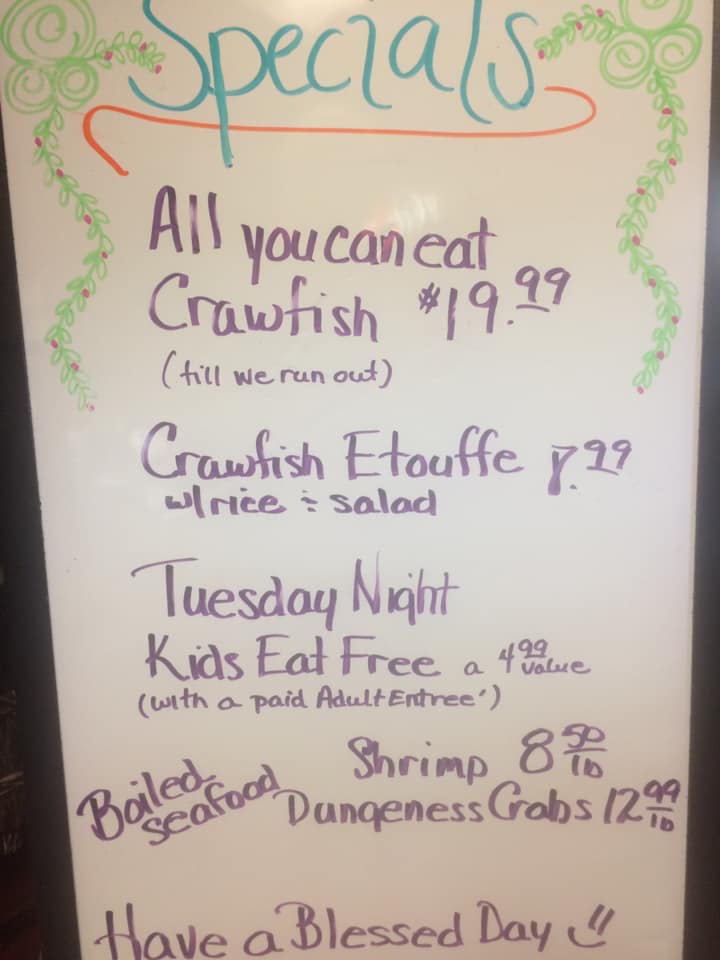 Specials
All you can eat
Crawfish $19.99
(till we run out)
Crawfish Etouffe 7.99
w/rice ÷ salad
Tuesday Night
Kids Eat Free a 4 99 value
(with a paid Adult Entree')
Boiled seafood
Shrimp 8 50/lb
Dungeness Crabs 12 99/lb
Have a Blessed Day